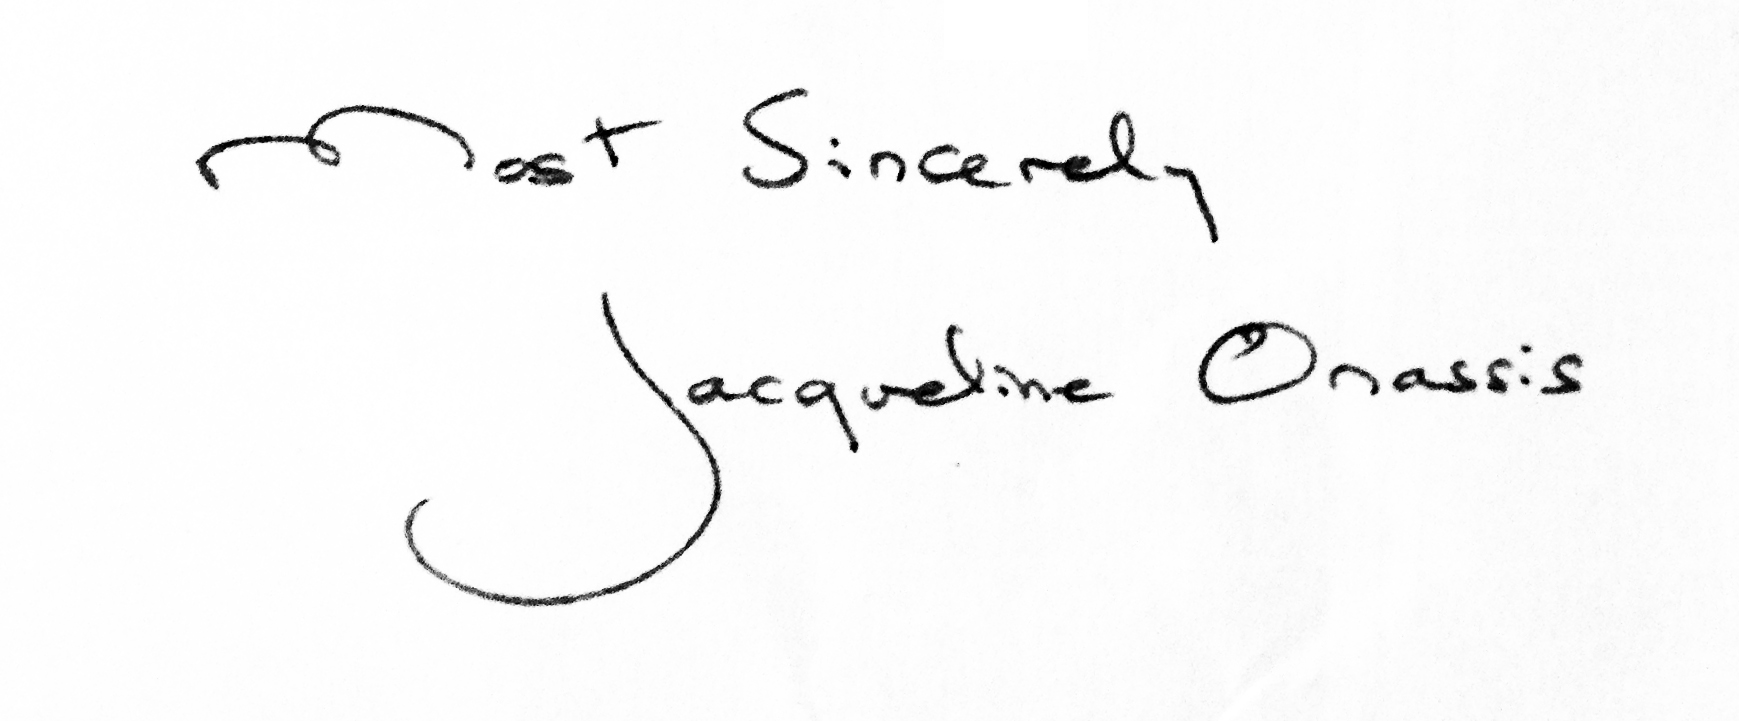 Most Sincerely
Jacqueline Onassis